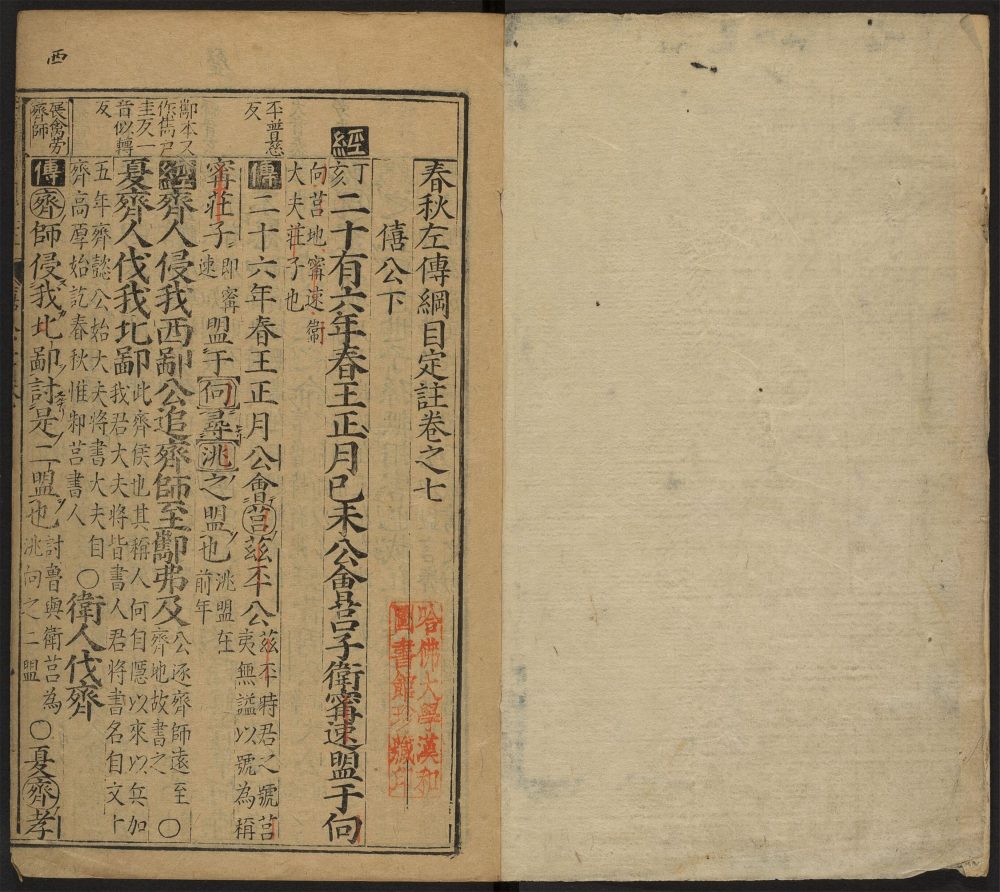 春秋左傳綱目定註卷之七
僖公下
經
丁亥二十有六年春王正月己未公會莒子衛甯速盟于向
向莒地甯速衛
大夫莊子也
傳二十六年春王正月公會莒茲丕公
茲丕時君之號莒
夷無諡以號為稱
甯莊子
即甯
速
盟于向尋洮之盟也
洮盟在
前年
經齊人侵我西鄙公追齊師至酅弗及
公逐齊師遠至
齊地故書之
〇
夏齊人伐我北鄙
此齊侯也其稱人何自隱以來以兵加
我君大夫將皆書人君將書名自文十
五年齊懿公始大夫將書大夫自
齊高厚始訖春秋惟邾莒書人
〇衛人伐齊
傳齊師侵我北鄙討是二盟也
討魯與衛莒為
洮向之二盟
〇夏齊孝
丕普悲
反
酅本又
作雟戶
圭反一
音似轉
反
展禽勞
齊師
西
哈佛大學漢和
圖書館珍藏印